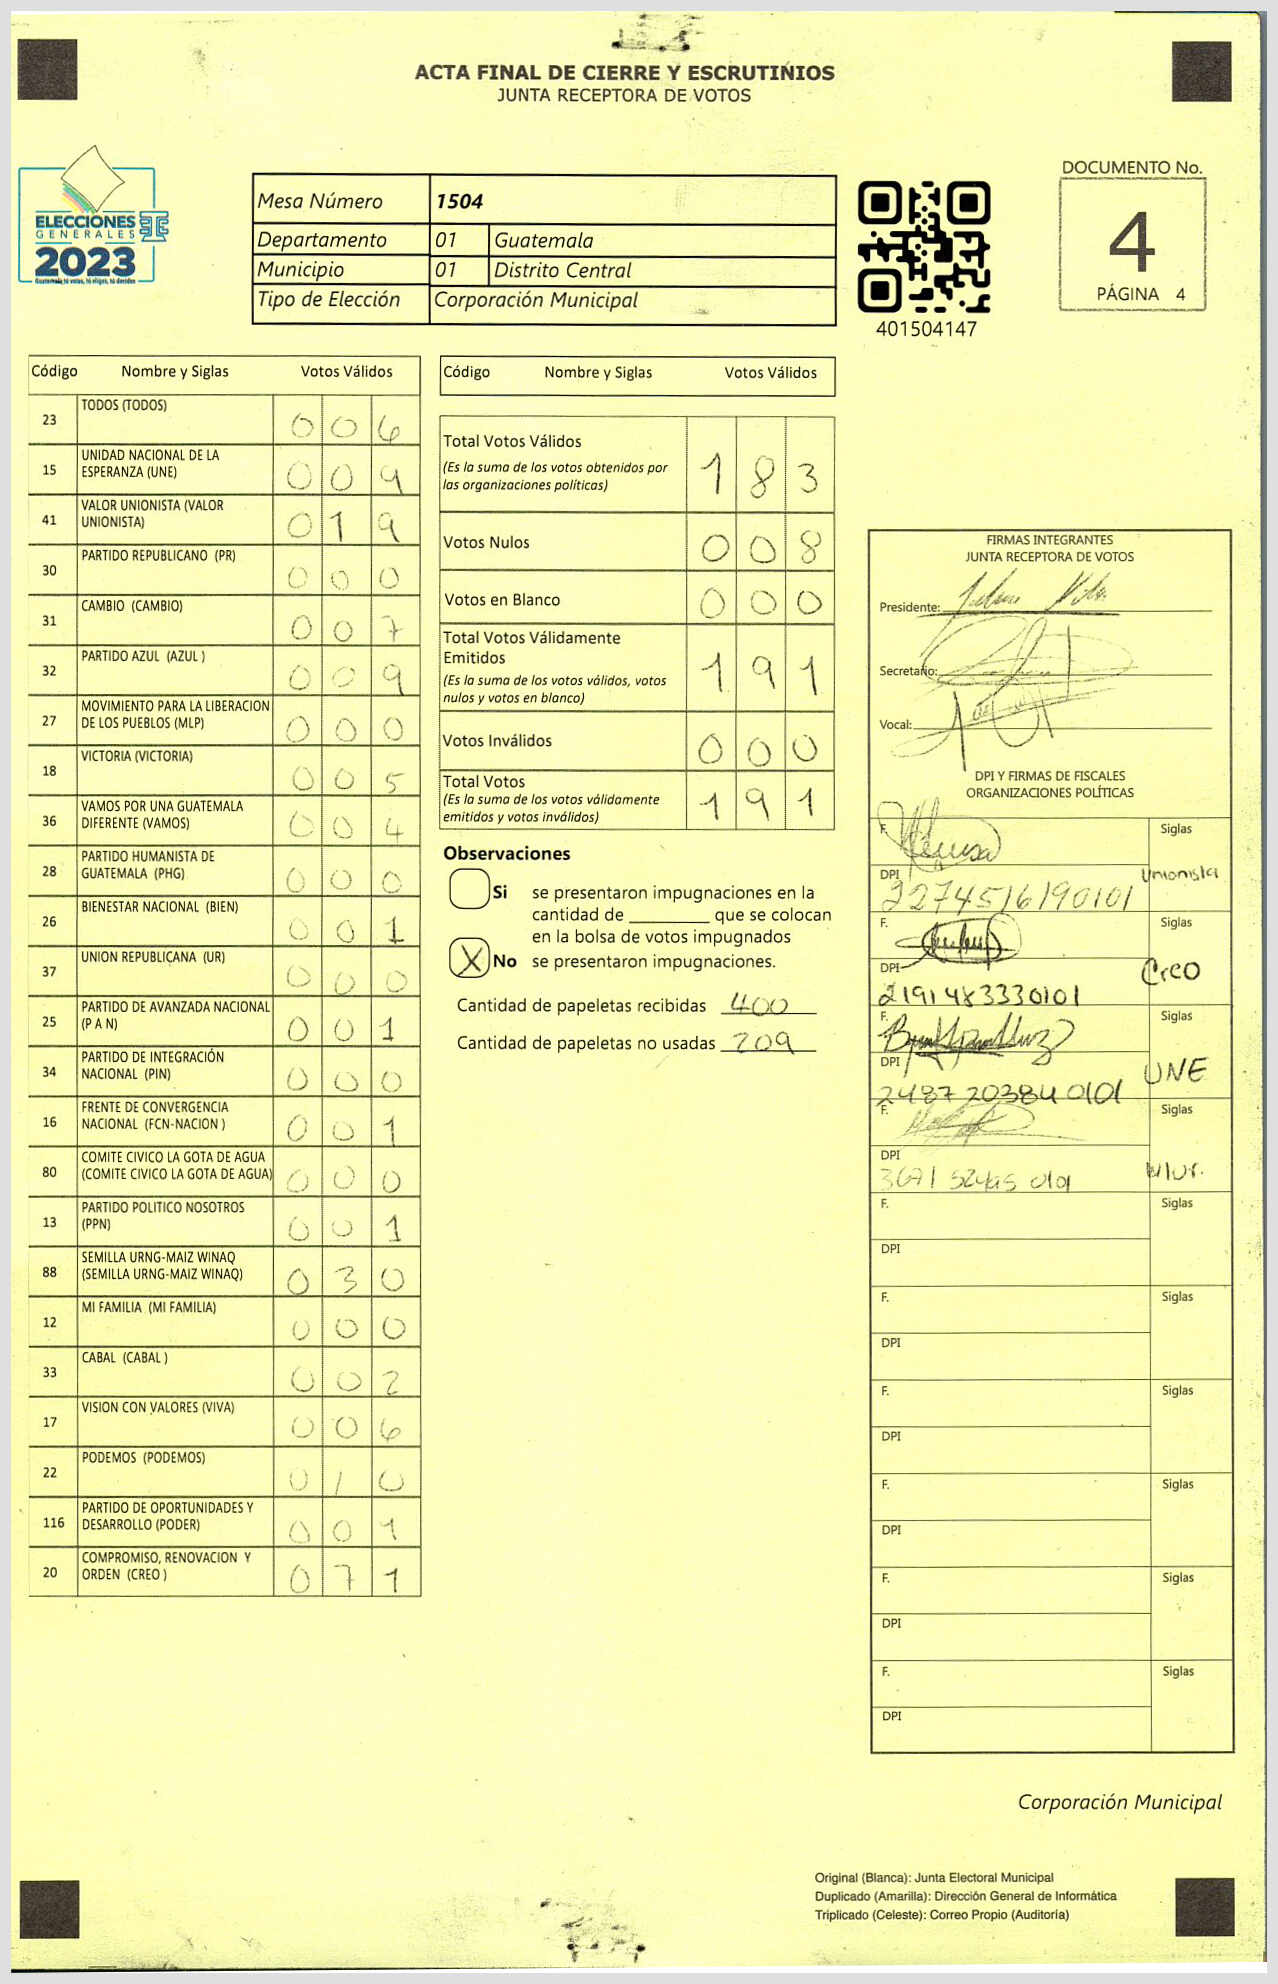 ACTA FINAL DE CIERRE Y ESCRUTINIOS
JUNTA RECEPTORA DE VOTOS
ELECCIONES
GENERALES
2023
Guatemala, tú votas, tú eliges, tú decides
Mesa Número 1504
Departamento 01 Guatemala
Municipio 01 Distrito Central
Tipo de Elección Corporación Municipal
401504147
DOCUMENTO No.
4
PÁGINA 4
Código Nombre y Siglas Votos Válidos
23 TODOS (TODOS) 0 0 6
15 UNIDAD NACIONAL DE LA
ESPERANZA (UNE) 0 0 9
41 VALOR UNIONISTA (VALOR
UNIONISTA) 0 1 9
30 PARTIDO REPUBLICANO (PR) 0 0 0
31 CAMBIO (CAMBIO) 0 0 7
32 PARTIDO AZUL (AZUL ) 0 0 9
27 MOVIMIENTO PARA LA LIBERACION
DE LOS PUEBLOS (MLP) 0 0 0
18 VICTORIA (VICTORIA) 0 0 5
36 VAMOS POR UNA GUATEMALA
DIFERENTE (VAMOS) 0 0 4
28 PARTIDO HUMANISTA DE
GUATEMALA (PHG) 0 0 0
26 BIENESTAR NACIONAL (BIEN) 0 0 1
37 UNION REPUBLICANA (UR) 0 0 0
25 PARTIDO DE AVANZADA NACIONAL
(P A N) 0 0 1
34 PARTIDO DE INTEGRACIÓN
NACIONAL (PIN) 0 0 0
16 FRENTE DE CONVERGENCIA
NACIONAL (FCN-NACION ) 0 0 1
80 COMITE CIVICO LA GOTA DE AGUA
(COMITE CIVICO LA GOTA DE AGUA) 0 0 0
13 PARTIDO POLITICO NOSOTROS
(PPN) 0 0 1
88 SEMILLA URNG-MAIZ WINAQ
(SEMILLA URNG-MAIZ WINAQ) 0 3 0
12 MI FAMILIA (MI FAMILIA) 0 0 0
33 CABAL (CABAL ) 0 0 2
17 VISION CON VALORES (VIVA) 0 0 6
22 PODEMOS (PODEMOS) 0 1 0
116 PARTIDO DE OPORTUNIDADES Y
DESARROLLO (PODER) 0 0 1
20 COMPROMISO, RENOVACION Y
ORDEN (CREO ) 0 7 1
Código Nombre y Siglas Votos Válidos
Total Votos Válidos 1 8 3
(Es la suma de los votos obtenidos por
las organizaciones políticas)
Votos Nulos 0 0 8
Votos en Blanco 0 0 0
Total Votos Válidamente
Emitidos 1 9 1
(Es la suma de los votos válidos, votos
nulos y votos en blanco)
Votos Inválidos 0 0 0
Total Votos 1 9 1
(Es la suma de los votos válidamente
emitidos y votos inválidos)
Observaciones
Si se presentaron impugnaciones en la
cantidad de ________ que se colocan
en la bolsa de votos impugnados
X No se presentaron impugnaciones.
Cantidad de papeletas recibidas 400
Cantidad de papeletas no usadas 209
FIRMAS INTEGRANTES
JUNTA RECEPTORA DE VOTOS
Presidente:
Secretario:
Vocal:
DPI Y FIRMAS DE FISCALES
ORGANIZACIONES POLÍTICAS
F. Siglas
DPI Unionista
2274516190101
F. Siglas
DPI Creo
2191483330101
F. Siglas
DPI UNE
2487 20384 0101
F. Siglas
DPI
F. Siglas
DPI
F. Siglas
DPI
F. Siglas
DPI
F. Siglas
DPI
F. Siglas
DPI
F. Siglas
DPI
Corporación Municipal
Original (Blanca): Junta Electoral Municipal
Duplicado (Amarilla): Dirección General de Informática
Triplicado (Celeste): Correo Propio (Auditoría)